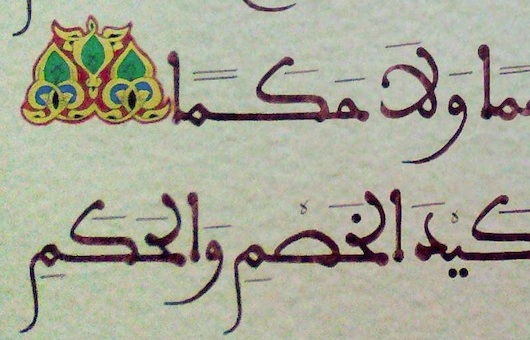 وَلَا حَكَماً
كَيْدَ الخَصْمِ وَالحَكَمِ